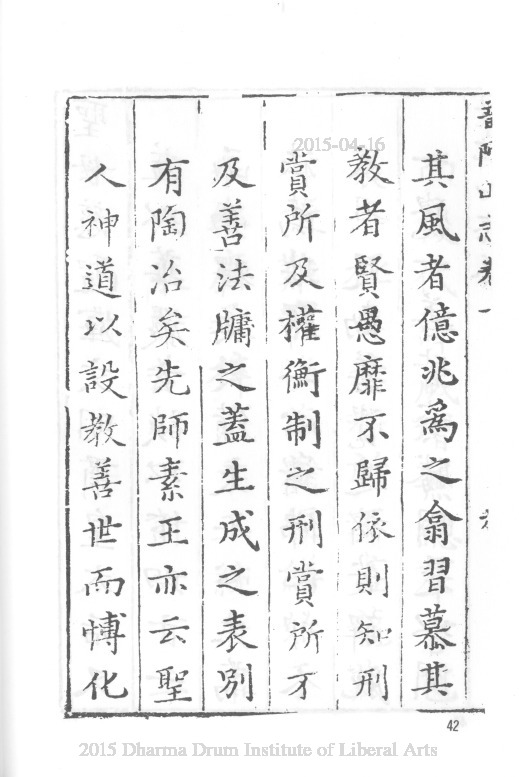 普陀山志卷一
其風者億兆爲之翕習慕其
教者賢愚靡不歸依則知刑
賞所及權衡制之刑賞所不
及善法牖之蓋生成之表別
有陶冶矣先師素王亦云聖
人神道以設教善世而愽化
42
2015-04-16
2015 Dharma Drum Institute of Liberal Arts